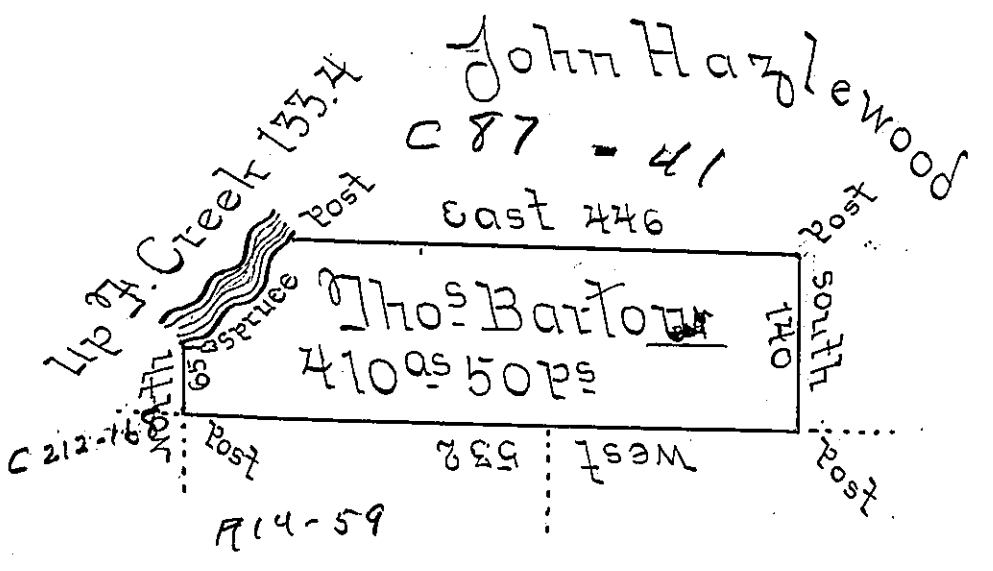 John Hazlewood
C 87 - 41
Up F. Creek 133.4
Post
East 446
Post
Spruce
Thos Barton
410as 50ps
North 65
South 140
C 212-168
Post
West 532
Post
A14-59